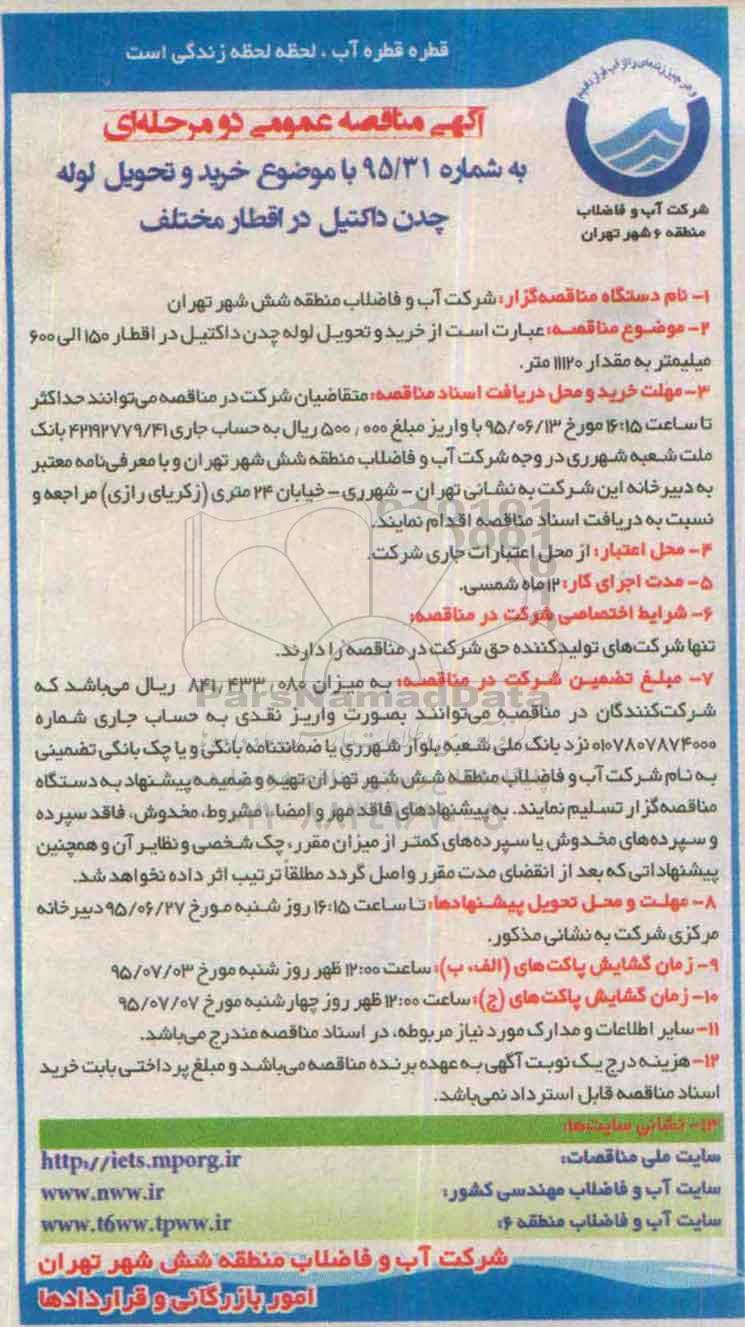 قطره قطره آب ، لحظه لحظه زندگی است
و هر چیز زنده‌ای را از آب قرار دادیم
شرکت آب و فاضلاب
منطقه ۶ شهر تهران
آگهی مناقصه عمومی دو مرحله‌ای
به شماره ۹۵/۳۱ با موضوع خرید و تحویل لوله
چدن داکتیل در اقطار مختلف
۱- نام دستگاه مناقصه‌گزار: شرکت آب و فاضلاب منطقه شش شهر تهران
۲- موضوع مناقصه: عبارت است از خرید و تحویل لوله چدن داکتیل در اقطار ۱۵۰ الی ۶۰۰
میلیمتر به مقدار ۱۱۱۲۰ متر.
۳- مهلت خرید و محل دریافت اسناد مناقصه: متقاضیان شرکت در مناقصه می‌توانند حداکثر
تا ساعت ۱۶:۱۵ مورخ ۹۵/۰۶/۱۳ با واریز مبلغ ۵۰۰٫۰۰۰ ریال به حساب جاری ۴۲۱۹۲۷۷۹/۴۱ بانک
ملت شعبه شهرری در وجه شرکت آب و فاضلاب منطقه شش شهر تهران و با معرفی‌نامه معتبر
به دبیرخانه این شرکت به نشانی تهران - شهرری - خیابان ۲۴ متری (زکریای رازی) مراجعه و
نسبت به دریافت اسناد مناقصه اقدام نمایند.
۴- محل اعتبار: از محل اعتبارات جاری شرکت.
۵- مدت اجرای کار: ۱۲ ماه شمسی.
۶- شرایط اختصاصی شرکت در مناقصه:
تنها شرکت‌های تولیدکننده حق شرکت در مناقصه را دارند.
۷- مبلغ تضمین شرکت در مناقصه: به میزان ۸۴۱٫۴۳۳٫۰۸۰ ریال می‌باشد که
ParsNamadData
شرکت‌کنندگان در مناقصه می‌توانند بصورت واریز نقدی به حساب جاری شماره
۰۱۰۷۸۰۷۸۷۴۰۰۰ نزد بانک ملی شعبه بلوار شهرری یا ضمانتنامه بانکی و یا چک بانکی تضمینی
به نام شرکت آب و فاضلاب منطقه شش شهر تهران تهیه و ضمیمه پیشنهاد به دستگاه
مناقصه‌گزار تسلیم نمایند. به پیشنهادهای فاقد مهر و امضاء، مشروط، مخدوش، فاقد سپرده
و سپرده‌های مخدوش یا سپرده‌های کمتر از میزان مقرر، چک شخصی و نظایر آن و همچنین
پیشنهاداتی که بعد از انقضای مدت مقرر واصل گردد مطلقاً ترتیب اثر داده نخواهد شد.
۸- مهلت و محل تحویل پیشنهادها: تا ساعت ۱۶:۱۵ روز شنبه مورخ ۹۵/۰۶/۲۷ دبیرخانه
مرکزی شرکت به نشانی مذکور.
۹- زمان گشایش پاکت‌های (الف، ب): ساعت ۱۲:۰۰ ظهر روز شنبه مورخ ۹۵/۰۷/۰۳
۱۰- زمان گشایش پاکت‌های (ج): ساعت ۱۲:۰۰ ظهر روز چهارشنبه مورخ ۹۵/۰۷/۰۷
۱۱- سایر اطلاعات و مدارک مورد نیاز مربوطه، در اسناد مناقصه مندرج می‌باشد.
۱۲- هزینه درج یک نوبت آگهی به عهده برنده مناقصه می‌باشد و مبلغ پرداختی بابت خرید
اسناد مناقصه قابل استرداد نمی‌باشد.
۱۳- نشانی سایت‌ها:
سایت ملی مناقصات: http://iets.mporg.ir
سایت آب و فاضلاب مهندسی کشور: www.nww.ir
سایت آب و فاضلاب منطقه ۶: www.t6ww.tpww.ir
شرکت آب و فاضلاب منطقه شش شهر تهران
امور بازرگانی و قراردادها